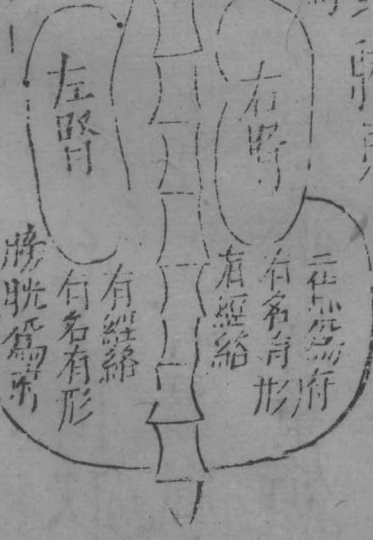 右腎
三焦爲府
有名有形
有經絡
左腎
有經絡
有名有形
膀胱爲府